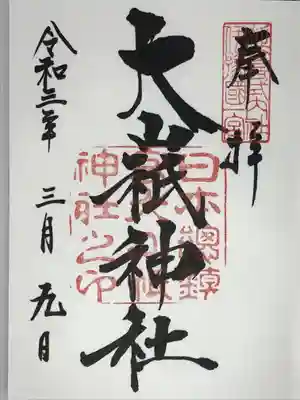 奉拝
大山祇神社
日本總鎮
神社之印
令和三年 三月 九日